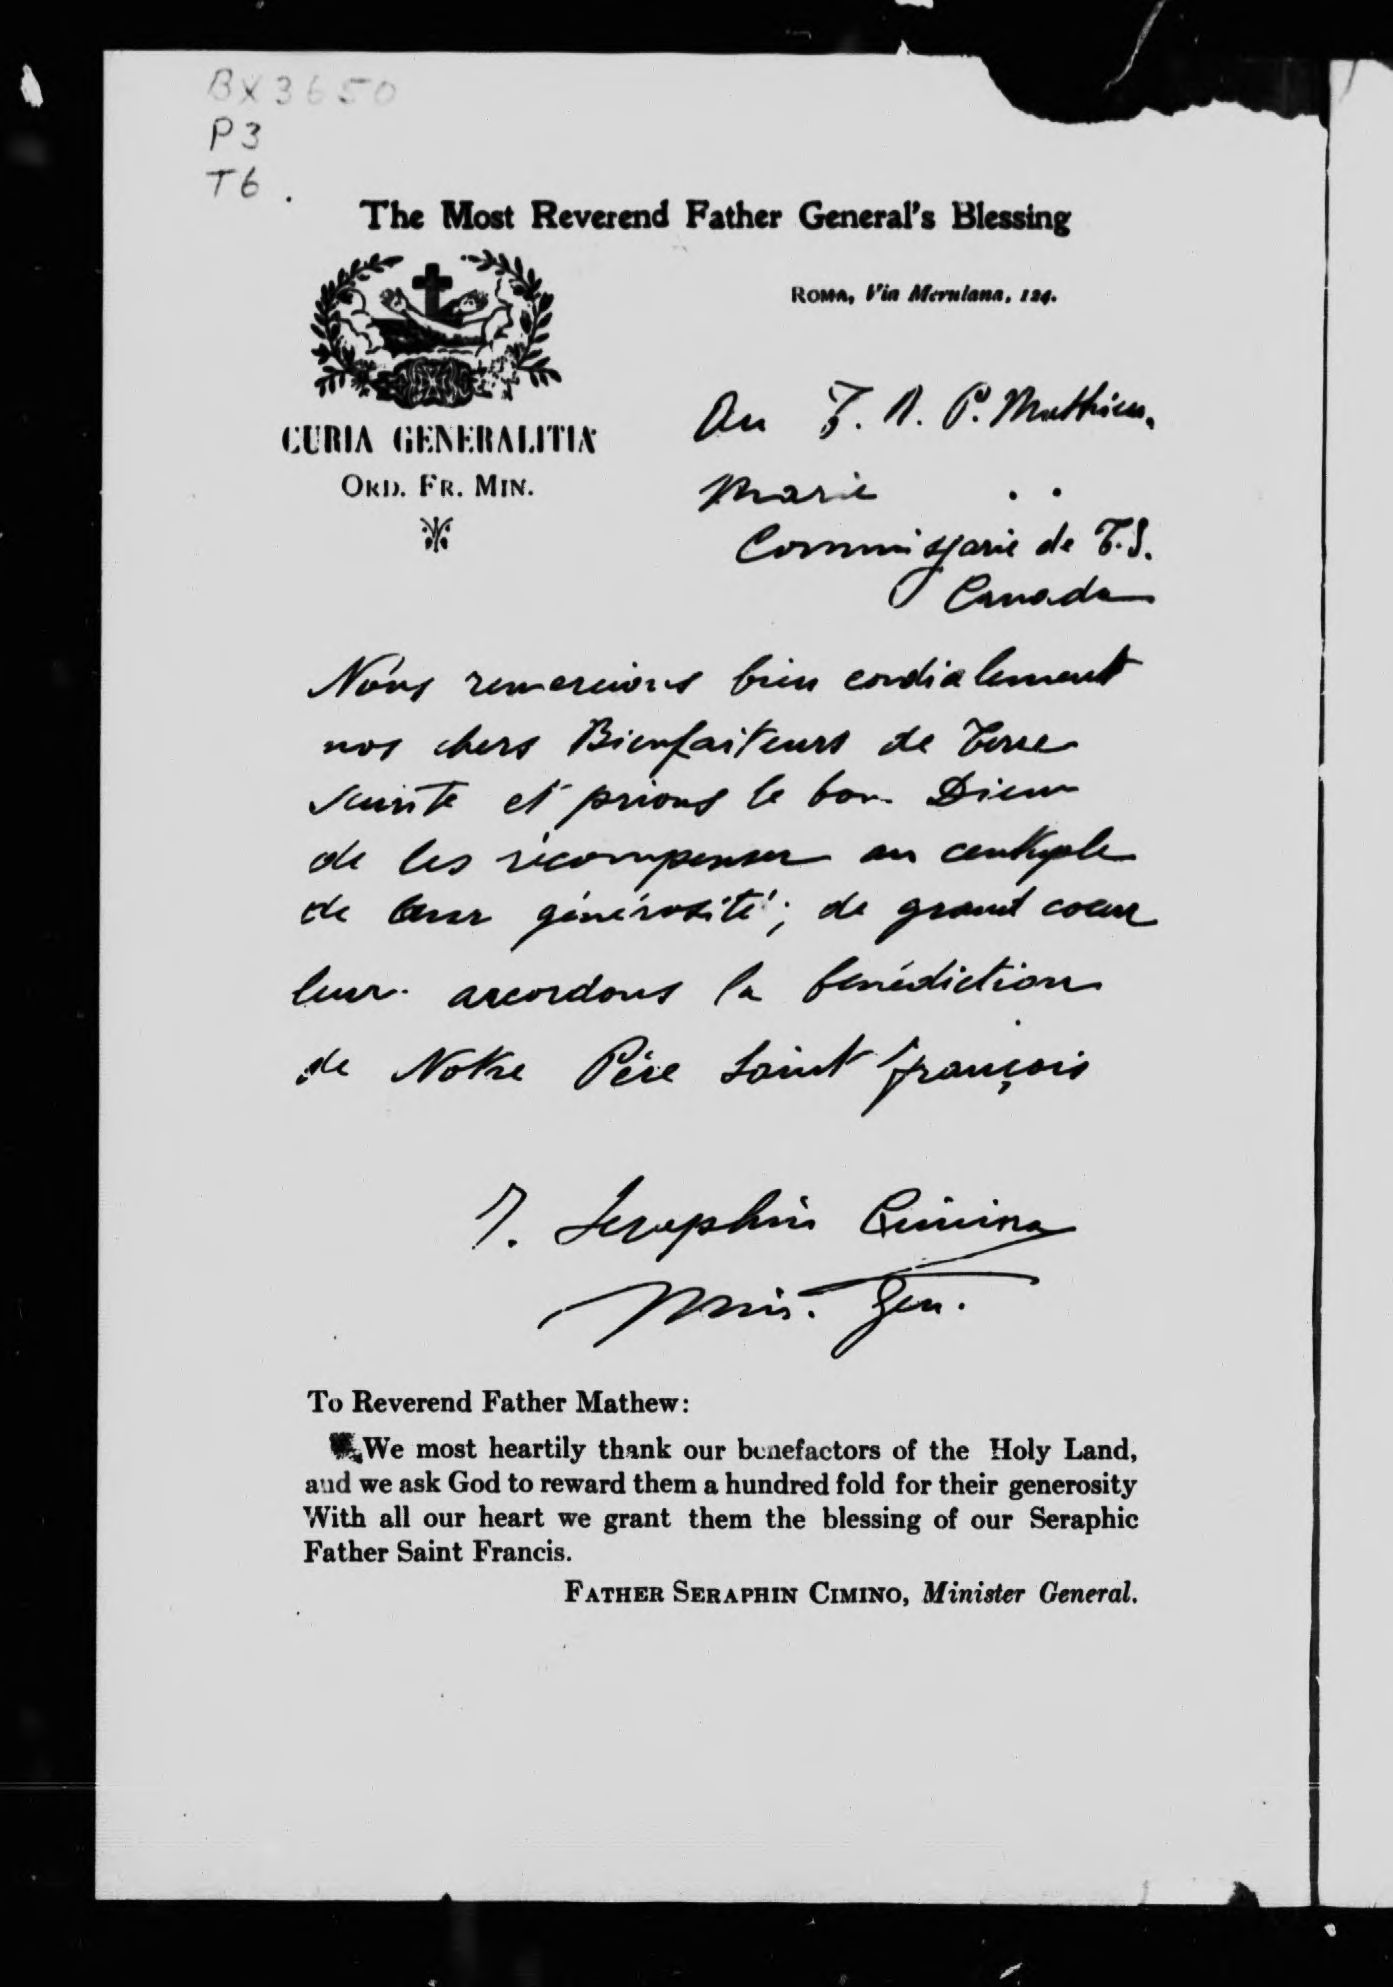 BX3650
P3
T6.
The Most Reverend Father General's Blessing
ROMA, Via Merulana, 124.
CURIA GENERALITIA
ORD. FR. MIN.
Au T. R. P. Mathieu,
Marie
Commissarie de T.S.
Canada
Nous remercions bien cordialement
nos chers Bienfaiteurs de Terre
sainte et prions le bon Dieu
de les récompenser au centuple
de leur générosité; de grand coeur
leur accordons la bénédiction
de Notre Père Saint François
f. Seraphin Cimino
Min. Gen.
To Reverend Father Mathew:
We most heartily thank our benefactors of the Holy Land,
and we ask God to reward them a hundred fold for their generosity
With all our heart we grant them the blessing of our Seraphic
Father Saint Francis.
FATHER SERAPHIN CIMINO, Minister General.